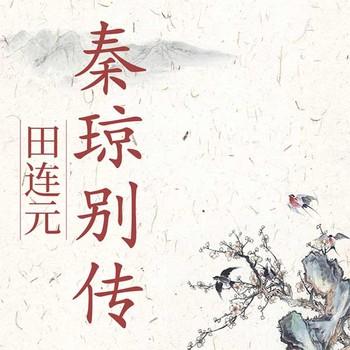 秦琼别传
田连元